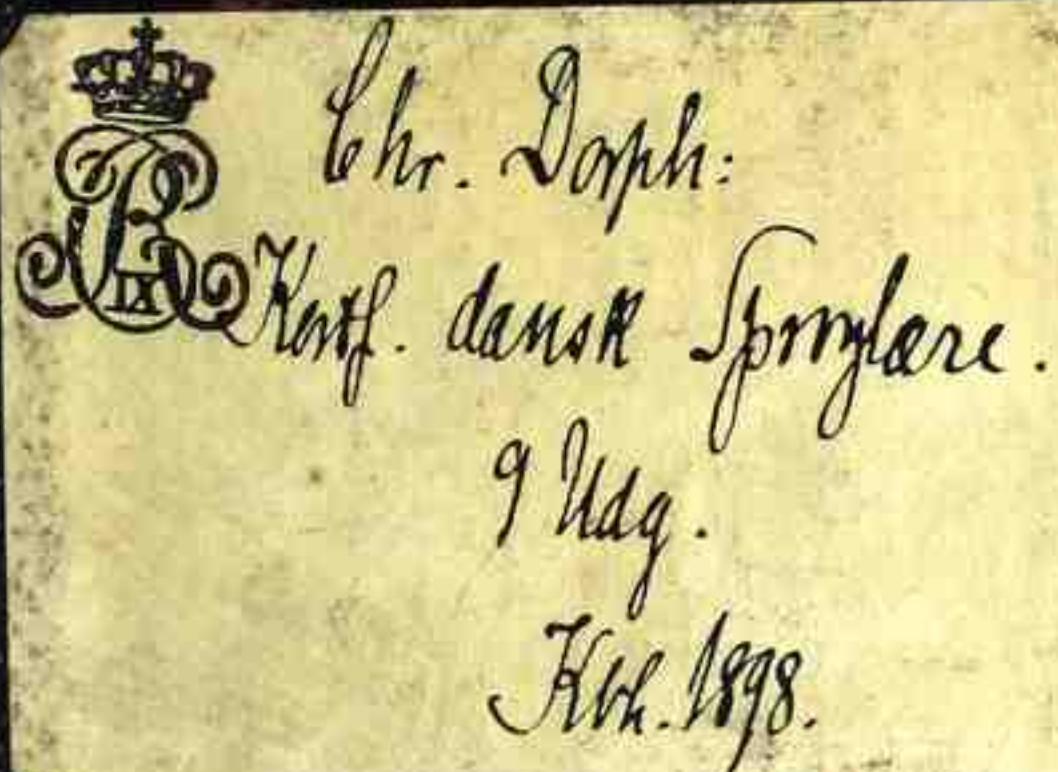 IX
Chr. Dorph:
Kortf. dansk Sproglære.
9 Udg.
Kbh. 1898.